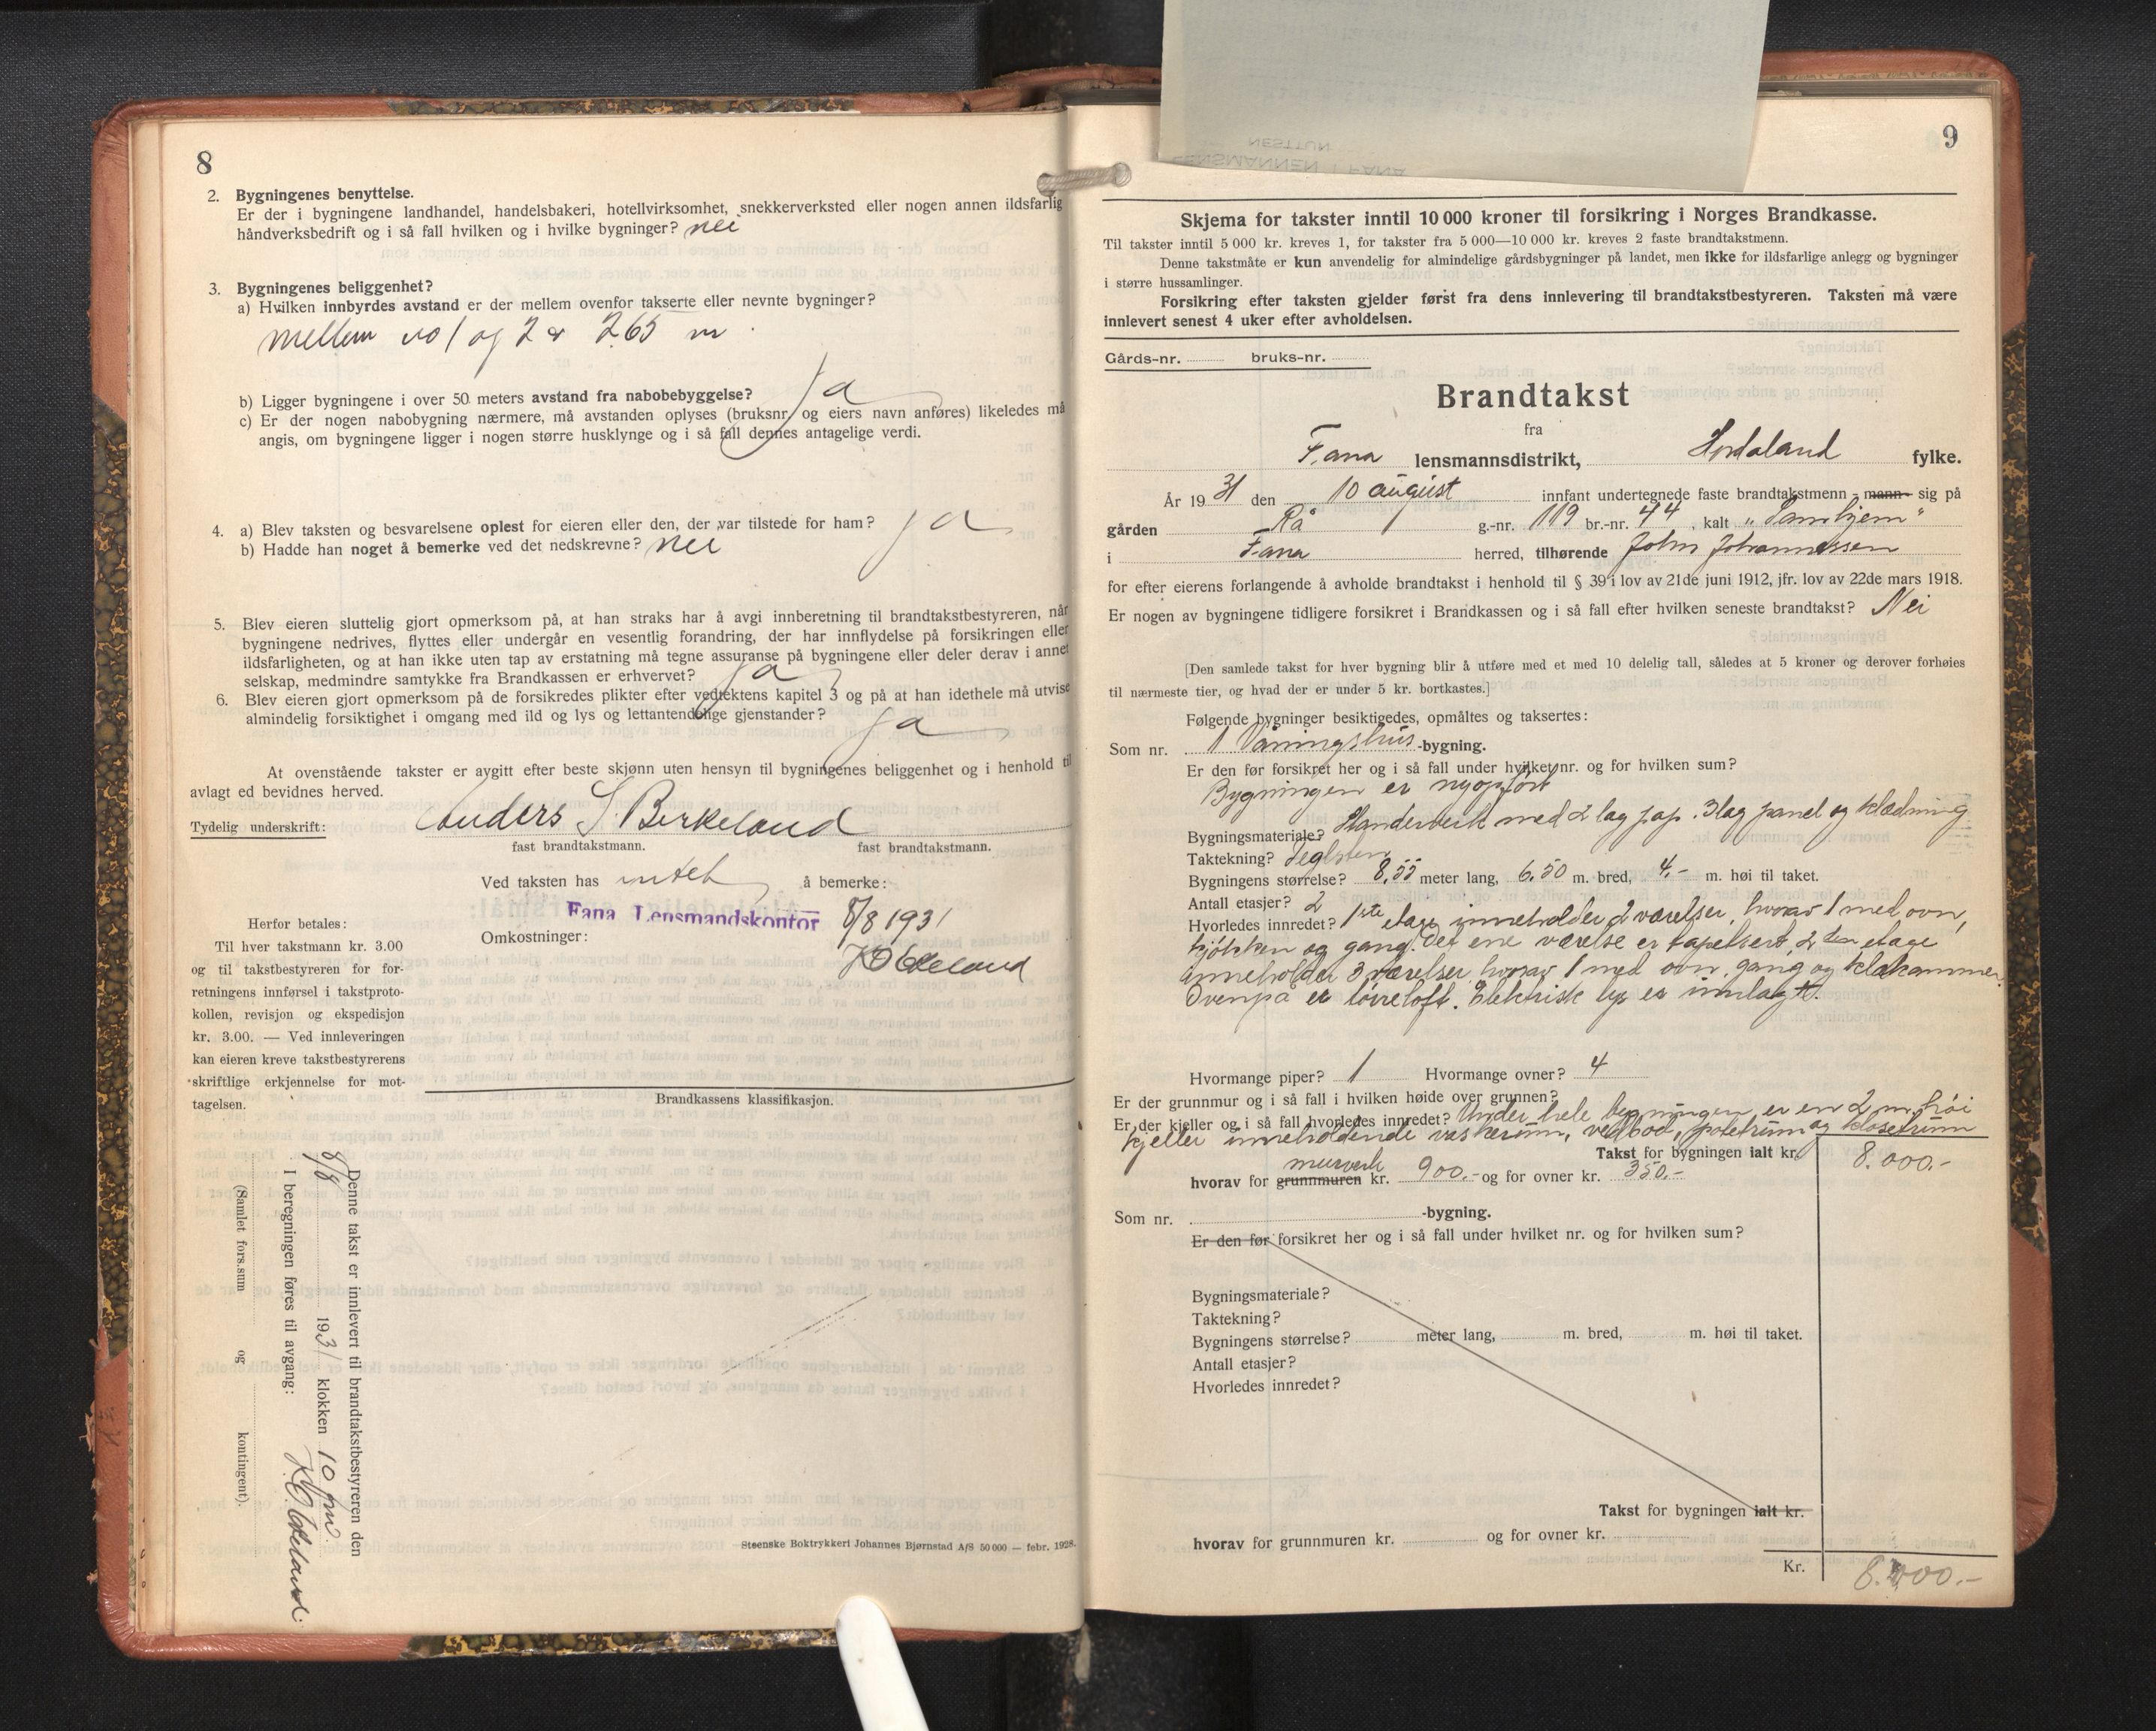 8
2. Bygningenes benyttelse.
Er der i bygningene landhandel, handelsbakeri, hotellvirksomhet, snekkerverksted eller nogen annen ildsfarlig
håndverksbedrift og i så fall hvilken og i hvilke bygninger? nei
3. Bygningenes beliggenhet?
a) Hvilken innbyrdes avstand er der mellem ovenfor takserte eller nevnte bygninger?
mellem no 1 og 2 er 265 m.
b) Ligger bygningene i over 50 meters avstand fra nabobebyggelse? ja
c) Er der nogen nabobygning nærmere, må avstanden oplyses (bruksnr. og eiers navn anføres) likeledes må
angis, om bygningene ligger i nogen større husklynge og i så fall dennes antagelige verdi.
4. a) Blev taksten og besvarelsene oplest for eieren eller den, der var tilstede for ham? ja
b) Hadde han noget å bemerke ved det nedskrevne? nei
5. Blev eieren sluttelig gjort opmerksom på, at han straks har å avgi innberetning til brandtakstbestyreren, når
bygningene nedrives, flyttes eller undergår en vesentlig forandring, der har innflydelse på forsikringen eller
ildsfarligheten, og at han ikke uten tap av erstatning må tegne assuranse på bygningene eller deler derav i annet
selskap, medmindre samtykke fra Brandkassen er erhvervet? ja
6. Blev eieren gjort opmerksom på de forsikredes plikter efter vedtektens kapitel 3 og på at han idethele må utvise
almindelig forsiktighet i omgang med ild og lys og lettantendelige gjenstander? ja
At ovenstående takster er avgitt efter beste skjønn uten hensyn til bygningenes beliggenhet og i henhold til
avlagt ed bevidnes herved.
Tydelig underskrift: Anders S. Birkeland
fast brandtakstmann. fast brandtakstmann.
Ved taksten has intet å bemerke:
Fana Lensmandskontor 8/8 1931
Omkostninger:
Herfor betales:
Til hver takstmann kr. 3.00
og til takstbestyreren for for-
retningens innførsel i takstproto-
kollen, revisjon og ekspedisjon
kr. 3.00. — Ved innleveringen
kan eieren kreve takstbestyrerens
skriftlige erkjennelse for mot-
tagelsen.
Brandkassens klassifikasjon.
Denne takst er innlevert til brandtakstbestyreren den
8/8 1931 klokken 10 fm.
I beregningen føres til avgang:
(Samlet fors.sum og kontingent).
Steenske Boktrykkeri Johannes Bjørnstad A/S 50 000 — febr. 1928.
LENSMANNEN I FANA
NESTTUN
9
Skjema for takster inntil 10 000 kroner til forsikring i Norges Brandkasse.
Til takster inntil 5 000 kr. kreves 1, for takster fra 5 000—10 000 kr. kreves 2 faste brandtakstmenn.
Denne takstmåte er kun anvendelig for almindelige gårdsbygninger på landet, men ikke for ildsfarlige anlegg og bygninger
i større hussamlinger.
Forsikring efter taksten gjelder først fra dens innlevering til brandtakstbestyreren. Taksten må være
innlevert senest 4 uker efter avholdelsen.
Gårds-nr. bruks-nr.
Brandtakst
fra
Fana lensmannsdistrikt, Hordaland fylke.
År 1931 den 10 august innfant undertegnede faste brandtakstmenn - mann - sig på
gården Rå g.-nr. 119 br.-nr. 44, kalt "Samhjem"
i Fana herred, tilhørende John Johannessen
for efter eierens forlangende å avholde brandtakst i henhold til § 39 i lov av 21de juni 1912, jfr. lov av 22de mars 1918.
Er nogen av bygningene tidligere forsikret i Brandkassen og i så fall efter hvilken seneste brandtakst? Nei
[Den samlede takst for hver bygning blir å utføre med et med 10 delelig tall, således at 5 kroner og derover forhøies
til nærmeste tier, og hvad der er under 5 kr. bortkastes.]
Følgende bygninger besiktigedes, opmåltes og taksertes:
Som nr. 1 Våningshus-bygning.
Er den før forsikret her og i så fall under hvilket nr. og for hvilken sum?
Bygningen er nyopført
Bygningsmateriale? Standerverk med 2 lag pap. 3 lag panel og klædning
Taktekning? Teglsten
Bygningens størrelse? 8,55 meter lang, 6,50 m. bred, 4,- m. høi til taket.
Antall etasjer? 2
Hvorledes innredet? 1ste etage inneholder 2 værelser, hvorav 1 med ovn,
kjøkken og gang. Det ene værelse er tapetsert, 2den etage
inneholder 3 værelser, hvorav 1 med ovn, gang og klekammer.
Ovenpå er tørreloft. Elektrisk lys er innlagt.
Hvormange piper? 1 Hvormange ovner? 4
Er der grunnmur og i så fall i hvilken høide over grunnen?
Er der kjeller og i så fall hvorledes innredet? Under hele bygningen er en 2 m. høi
kjeller inneholdende vaskerum, vedbod, potetrum og klosetrum
Takst for bygningen ialt kr. 8.000.-
murverk
hvorav for grunnmuren kr. 900.- og for ovner kr. 350.-
Som nr. -bygning.
Er den før forsikret her og i så fall under hvilket nr. og for hvilken sum?
Bygningsmateriale?
Taktekning?
Bygningens størrelse? meter lang, m. bred, m. høi til taket.
Antall etasjer?
Hvorledes innredet?
Takst for bygningen ialt kr.
hvorav for grunnmuren kr. og for ovner kr.
Kr. 8.000.-